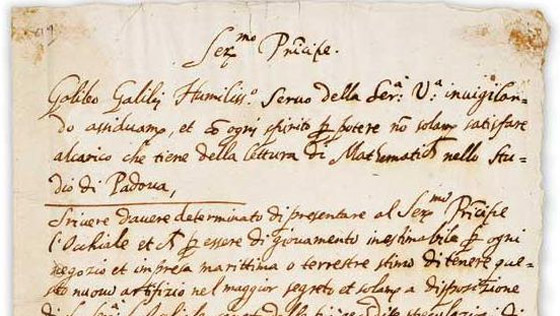 Ser.mo Prīcipe.
Galileo Galilei Humiliss.o Servo della Ser.a V.a invigilan-
do assiduam.te, et cō ogni spirito p potere nō solam.te satisfare
alcarico che tiene della lettura di Mathematica nello Stu-
dio di Padova,
Scrivere davere determinato di presentare al Ser.mo Prīcipe
l'Occhiale et p essere di giovamento inestimabile p ogni
negozio et impresa marittima o terrestre stimo di tenere que-
sto nuovo artifizio nel maggior segreto et solam.te a disposizione
di